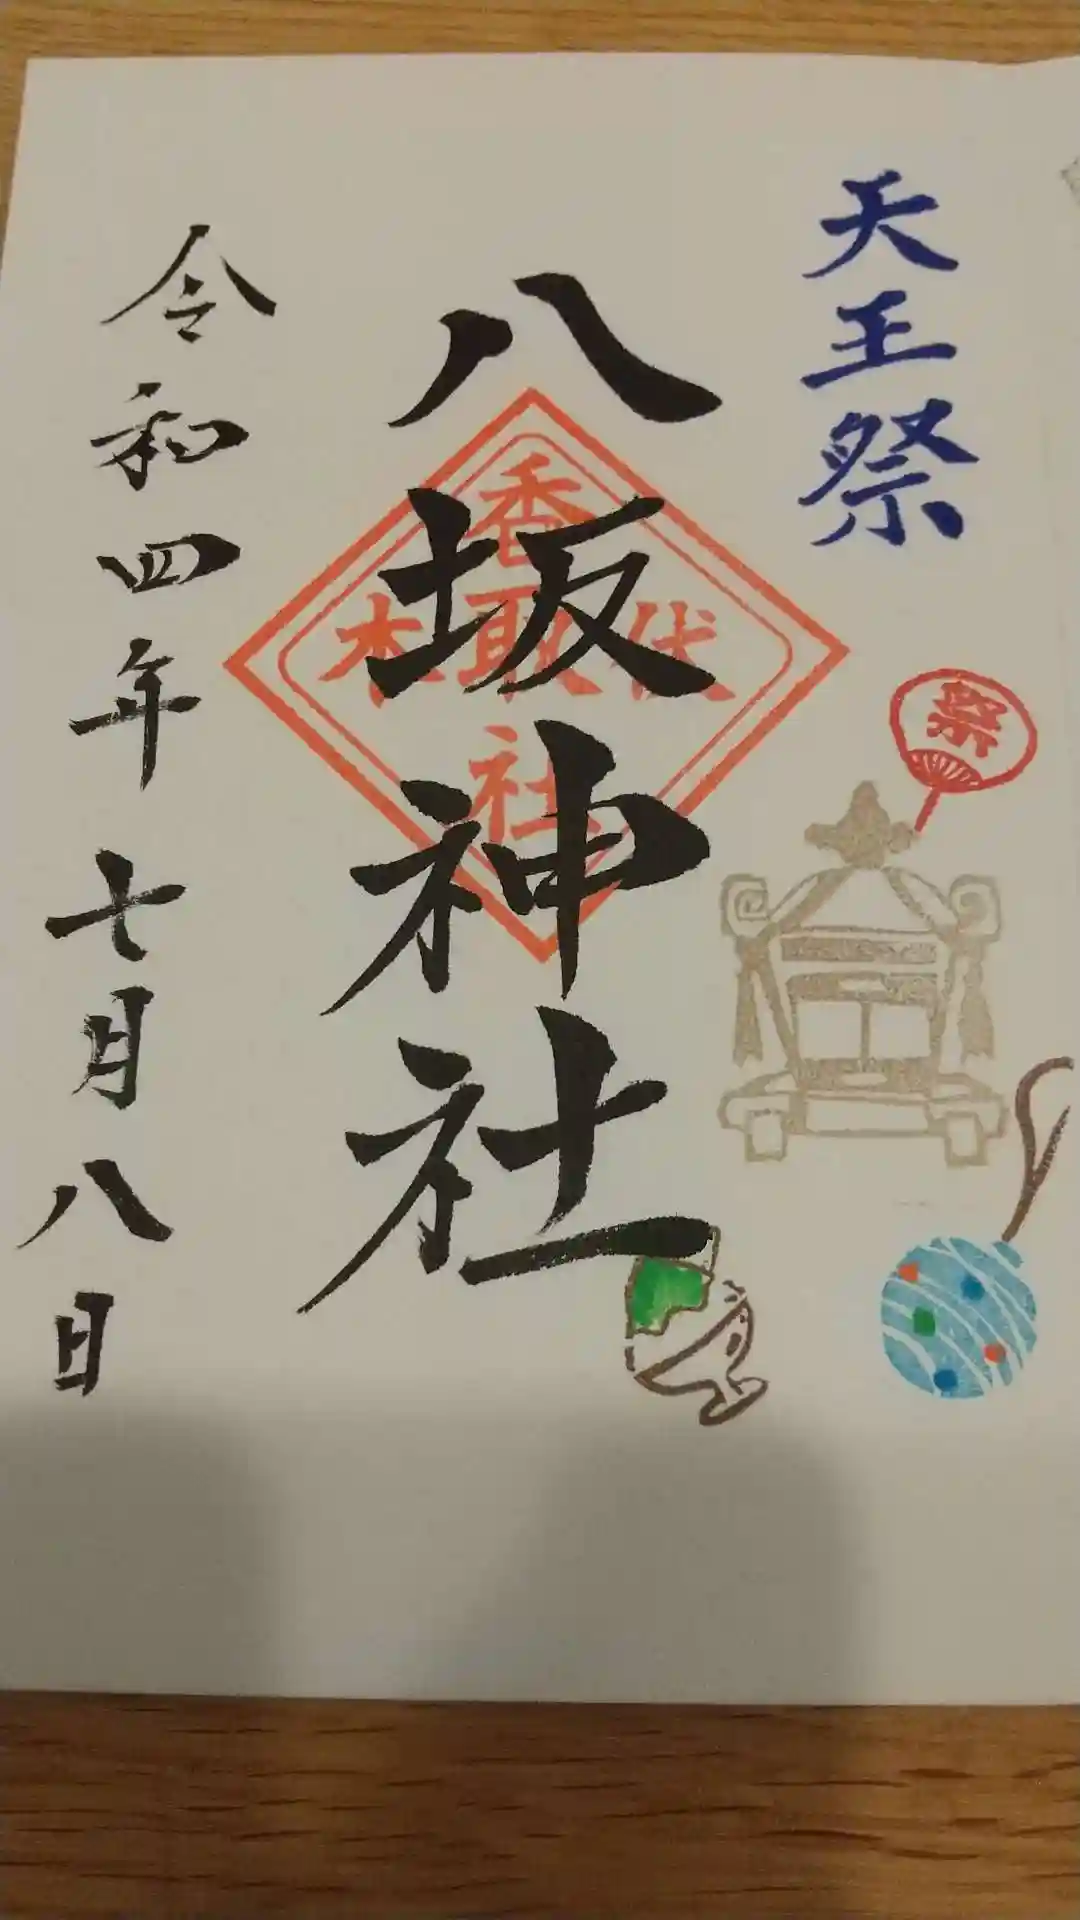 天王祭
祭
八坂神社
香取社
伏木
令和四年七月八日